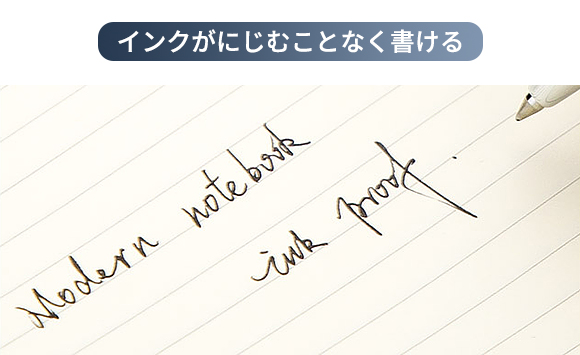 インクがにじむことなく書ける
Modern notebook
ink proof